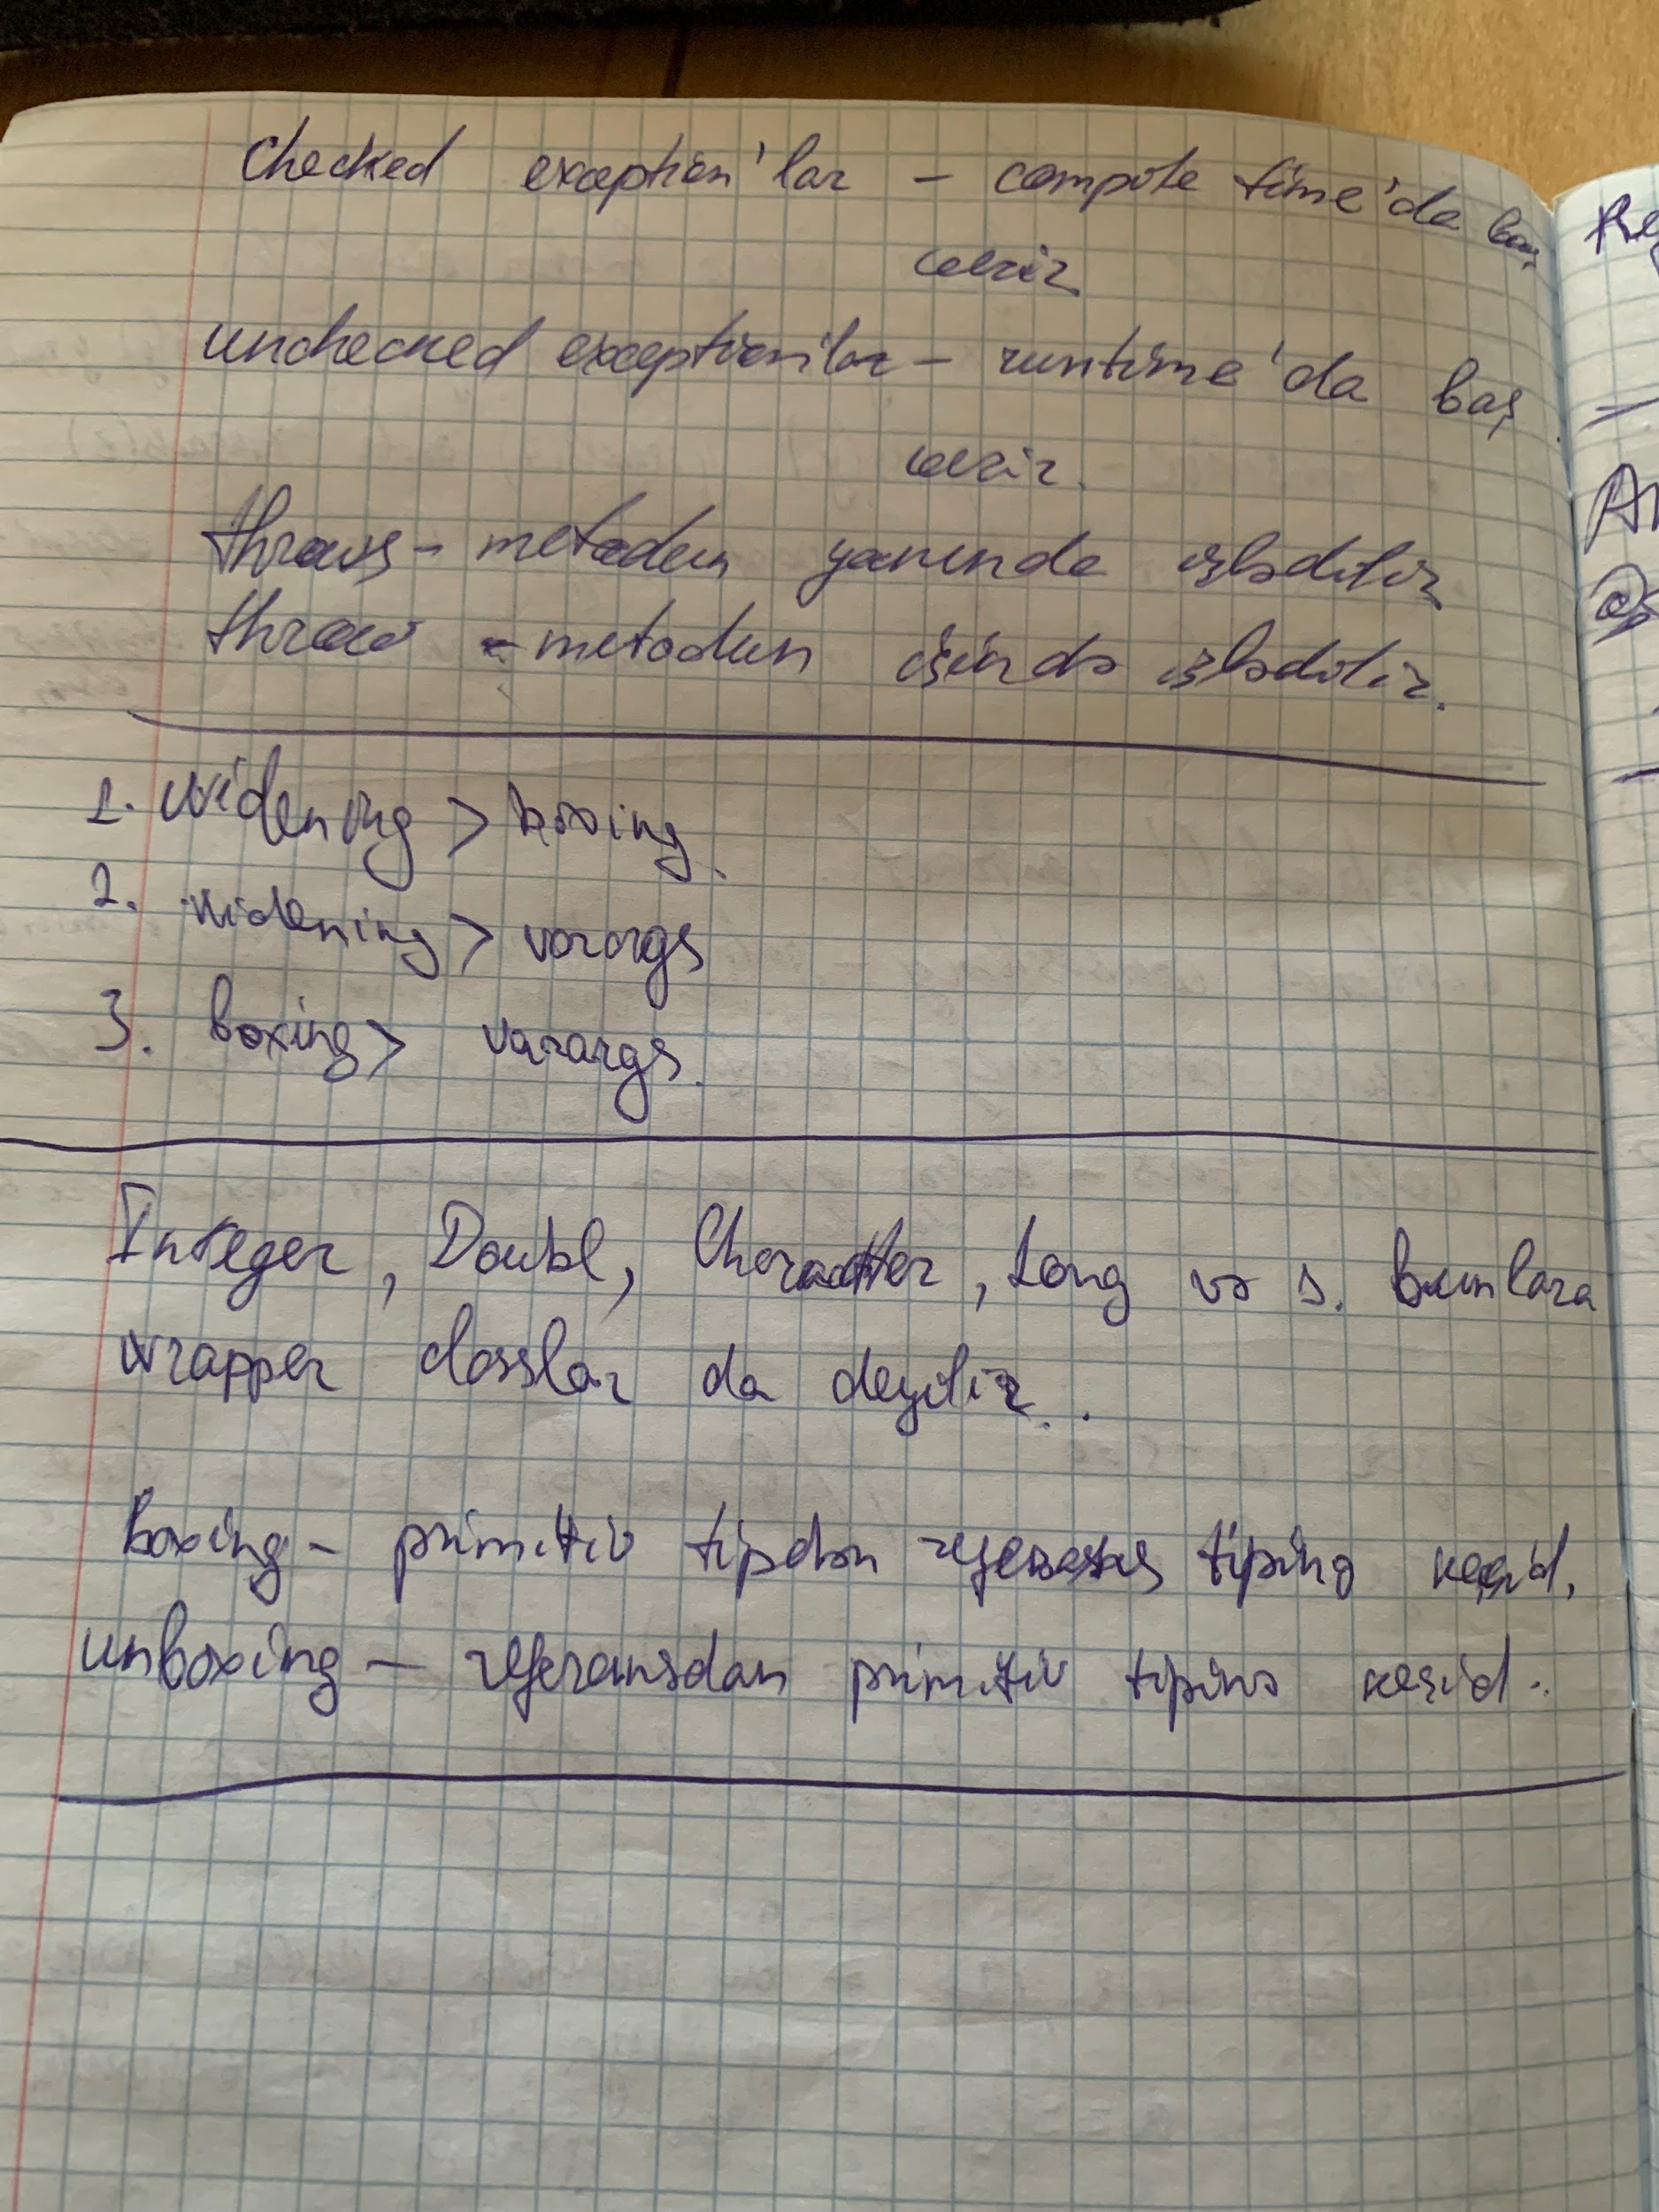 Checked exception'lar – compile time'da baş
verir
unchecked exception'lar – runtime'da baş
verir.
throws – metodun yanında işlədilir
throw – metodun içində işlədilir.
1. widening > boxing.
2. widening > varargs
3. boxing > varargs.
Integer, Doubl, Character, Long və s. bunlara
wrapper classlar da deyilir.
boxing – primitiv tipdən referans tipinə keçid.
unboxing – referansdan primitiv tipinə keçid.